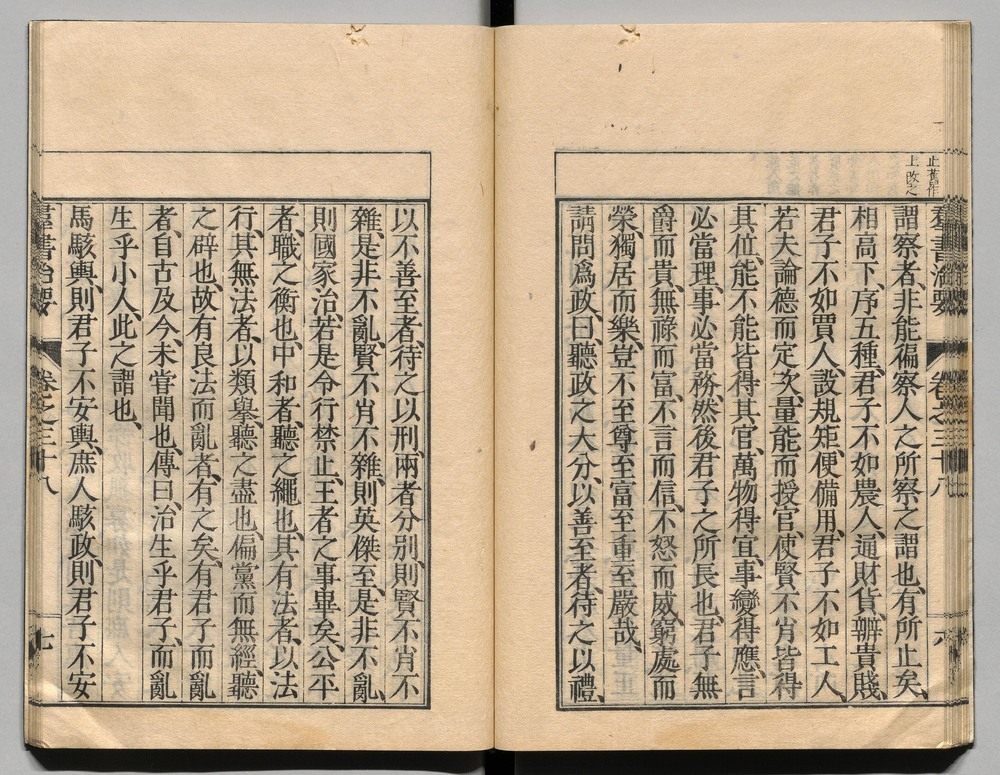 止舊作
上改之
羣書治要 卷之三十八 六
謂察者、非能偏察人之所察之謂也、有所止矣、
相高下、序五種、君子不如農人、通財貨、辨貴賤、
君子不如賈人、設規矩、便備用、君子不如工人、
若夫論德而定次、量能而授官、使賢不肖皆得
其位、能不能皆得其官、萬物得宜、事變得應、言
必當理、事必當務、然後君子之所長也、君子無
爵而貴、無祿而富、不言而信、不怒而威、窮處而
榮、獨居而樂、豈不至尊至富至重至嚴哉、
請問爲政、曰、聽政之大分、以善至者、待之以禮、
以不善至者、待之以刑、兩者分別、則賢不肖不
雜、是非不亂、賢不肖不雜、則英傑至、是非不亂、
則國家治、若是令行禁止、王者之事畢矣、公平
者、職之衡也、中和者、聽之繩也、其有法者、以法
行、其無法者、以類舉、聽之盡也、偏黨而無經、聽
之辟也、故有良法而亂者、有之矣、有君子而亂
者、自古及今、未甞聞也、傳曰、治生乎君子、而亂
生乎小人、此之謂也、
馬駭輿、則君子不安輿、庶人駭政、則君子不安
羣書治要 卷之三十八 七